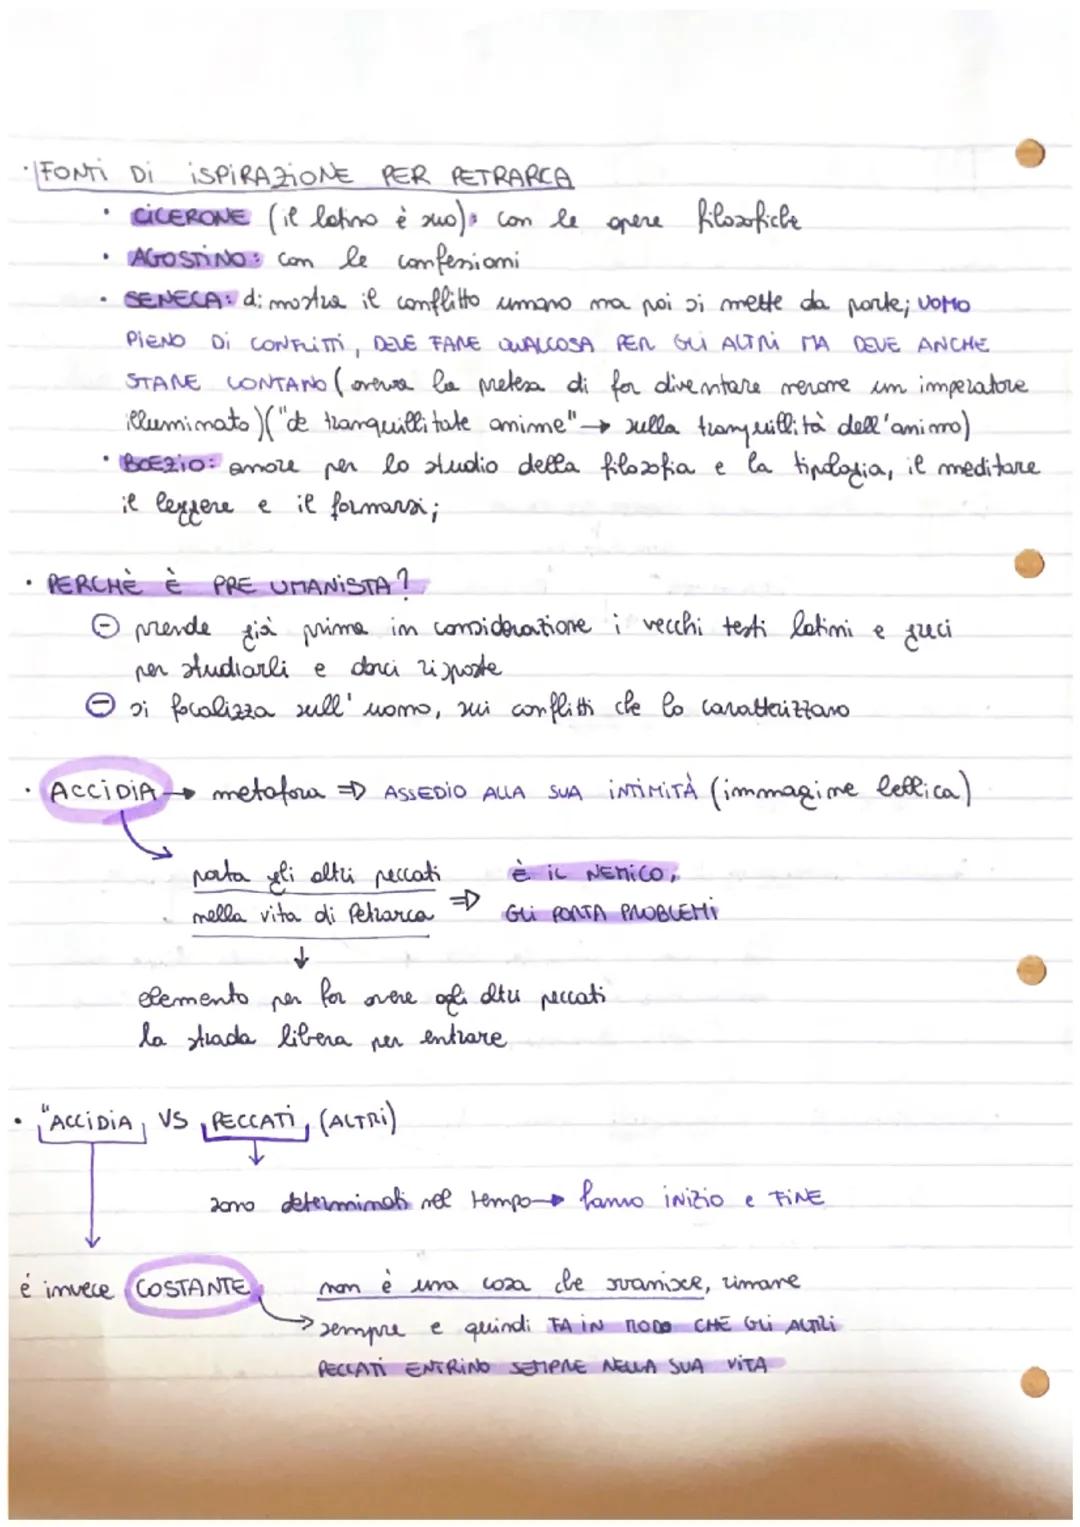 · FONTI DI iSPiRAZIONE PER PETRARCA
· CICERONE (il latino è suo): con le opere filosofiche
· AGOSTINO: con le confessioni
· SENECA: dimostra il conflitto umano ma poi si mette da parte; UOMO
PIENO Di CONFLITTI, DEVE FARE QUALCOSA PER GLI ALTRI MA DEVE ANCHE
STARE LONTANO (aveva la pretesa di far diventare nerone un imperatore
illuminato) ("de tranquillitate anime" → sulla tranquillità dell'animo)
· BOEZIO: amore per lo studio della filosofia e la tipologia, il meditare
il leggere e il formarsi;
· PERCHÈ È PRE UMANISTA?
⊖ prende già prima in considerazione i vecchi testi latini e greci
per studiarli e darci risposte
⊖ si focalizza sull'uomo, sui conflitti che lo caratterizzano
· ACCIDIA → metafora ⇒ ASSEDIO ALLA SUA INTIMITÀ (immagine bellica)
porta gli altri peccati ⇒ È IL NEMICO,
nella vita di Petrarca GLI PORTA PROBLEMI
↓
elemento per far avere agli altri peccati
la strada libera per entrare
· "ACCIDIA VS PECCATI (ALTRI)
sono determinati nel tempo → hanno inizio e FINE
é invece COSTANTE non è una cosa che svanisce, rimane
→ sempre e quindi FA IN MODO CHE GLI ALTRI
PECCATI ENTRINO SEMPRE NELLA SUA VITA